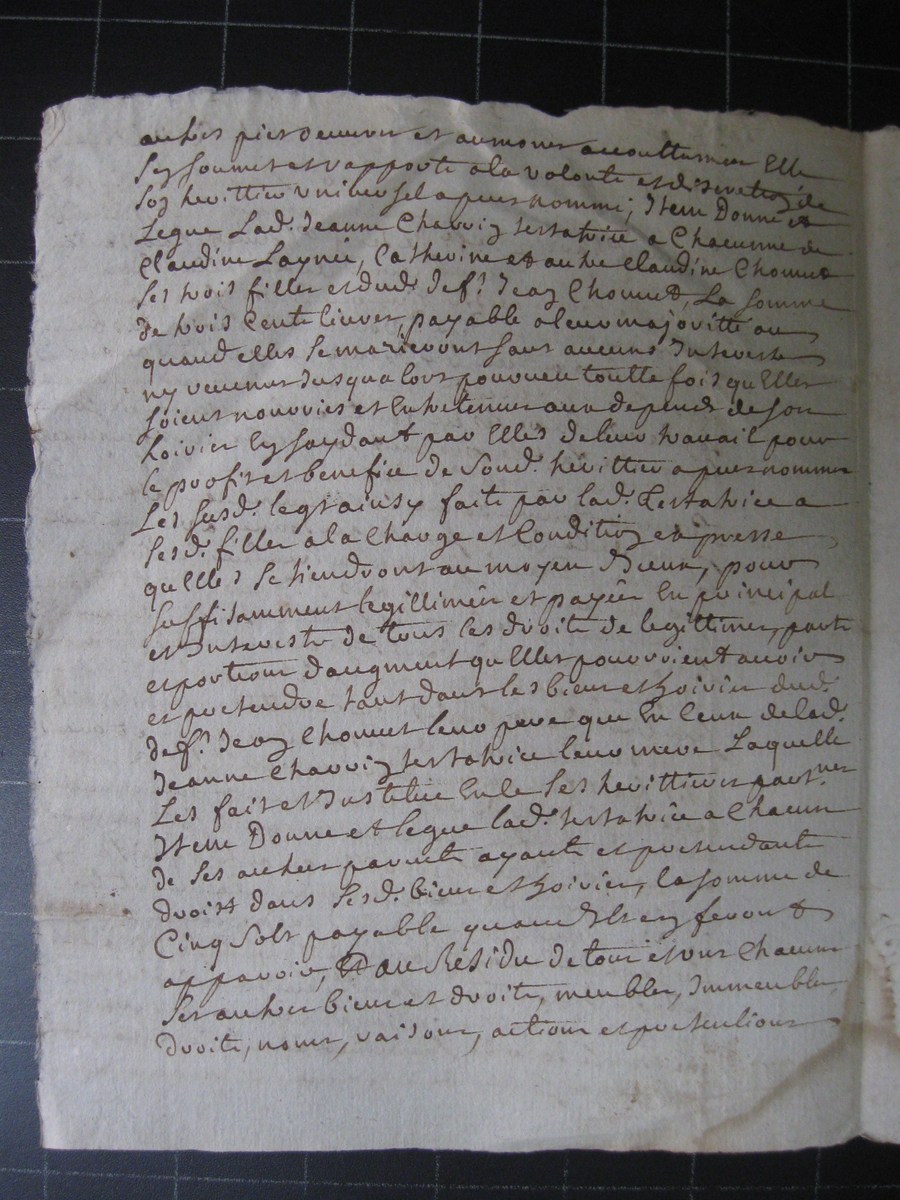 autres pies oeuvres et aumones accouttumées Elle
Sen soumet et rapporte a la volonte et discretion de
Son herittier universel apres nommé, Item Donne et
Legue Lad. Jeanne Charriy testatrice a Chacunne de
Claudine Laynée, Catherine et autre Claudine Chomet
Ses trois filles et dud. def.t Jean Chomet, La somme
de trois Cents livres, payable a leur majoritté ou
quand elles se marieront sans aucuns Interests
ny revenus Jusqua lors pourveu toutte fois quElles
soient nourries et Entretenues aux depends de son
hoirie En saydant par Elles de leur travail pour
le proffit et benefice de Sond. herittier apres nommer
Les susd. legs ainsy faits par lad. testatrice a
Sesd. filles a la Charge et Condition expresse
quElles se tiendront au moyen Diceux, pour
suffisamment legittimées et payées En principal
et Interests de tous les droits de legittimes, parts
et portions daugment quElles pourroient avoir
et pretendre tant dans les biens et hoiries dud.
def.t Jean Chomet leur pere que En Ceux de lad.
Jeanne Charriy testatrice leur mere Laquelle
Les fait et Institue En Ce Ses herittieres part.res
Item Donne et legue lad. testatrice a Chacun
de Ses autres parents ayants et pretendants
droits dans Sesd. biens et hoiries, la somme de
Cinq Sols payable quand Ils en feront
apparoir, Et au Residu de tous et uns Chacuns
Ses autres biens et droits, meubles, Immeubles,
droits, noms, raisons, actions et pretentions